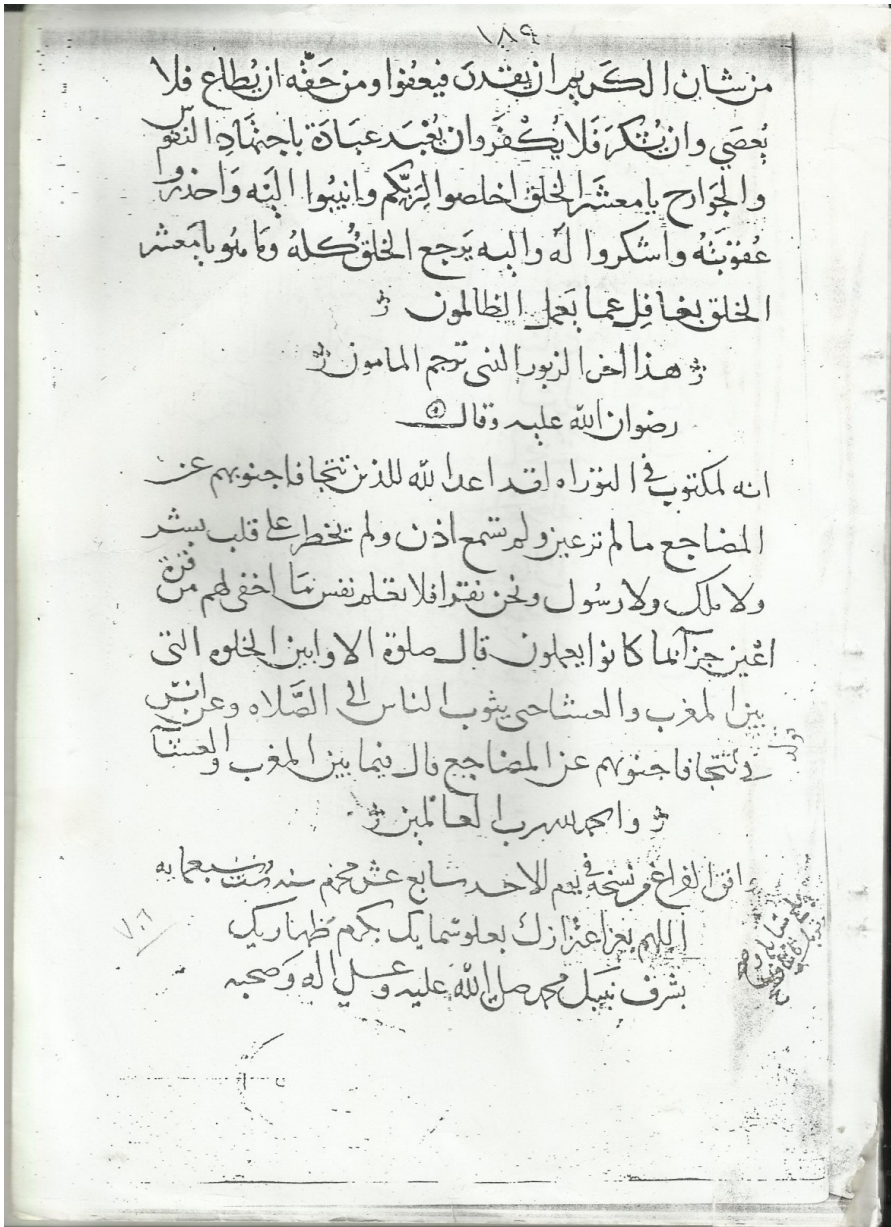 ١٨٩
من شان الكريم ان يقدر فيعفوا ومن حقه ان يُطاع فلا
يُعصي وان يُشكرَ فَلا يُكْفَر وان يُعْبَد عبَادَة باجتهَادِ النفوس
والجَوَارح يا معشَر الخلق اخلصوا لِرَبّكم وانيبُوا اليْه وَاحذروا
عُقوبَتهُ واشكروا لَهُ واليه يَرجع الخلق كُله وَمَا هُو يا مَعشر
الخلق بغافِل عما يَعمل الظالمون
هذا اخر الزبور التي ترجم المامون
رضوان الله عليه وقال
انه لمكتوب في التوراه لقد اعد الله للذين تتجافا جنوبهم عن
المضاجع ما لم تر عين ولم تسمع اذن ولم يخطر على قلب بشر
ولا ملك ولا رسُول ونحن نقرا فلا تعلم نفس مَا اخفي لهم من قرة
اعْين جزآ بما كانوا يعملون قال صلوة الاوابين الخلوه التى
بين المغرب والعشا حتى يثوب الناس الى الصَّلاه وعن انس
في تتجافا جنوبهم عن المضاجع قال فيما بين المغرب والعشآ
قوله
والحمد لله رب العالمين
وافق الفراغ من نسخه في يوم الاحد سابع عشر محرم سنه ست وسبعمايه
٧٠٦
اللهم بعز اعتزازك بعلو سمايك بكرم
بشرف نبيك محمد صلى الله عليه وعلى اله وَصحبه